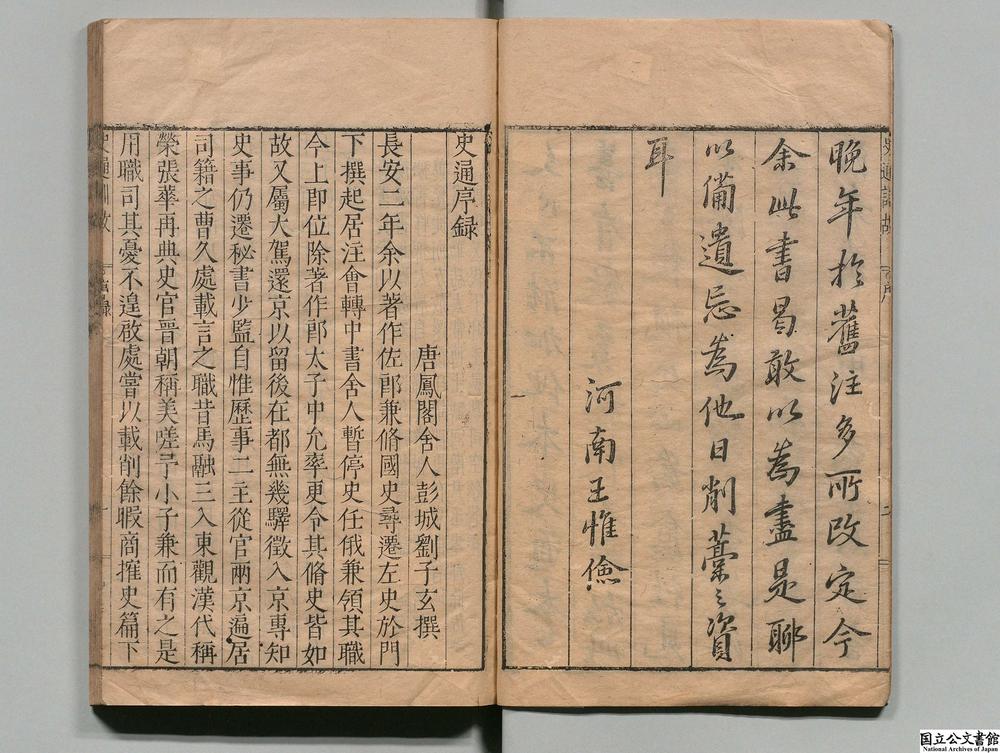 晚年於舊注多所改定今
余此書曷敢以為盡是聊
以備遺忘為他日削藁之資
耳
河南王惟儉
史通序錄
唐鳳閣舍人彭城劉子玄撰
長安二年余以著作佐郎兼脩國史尋遷左史於門
下撰起居注會轉中書舍人暫停史任俄兼領其職
今上即位除著作郎太子中允率更令其脩史皆如
故又屬大駕還京以留後在都無幾驛徵入京專知
史事仍遷秘書少監自惟歷事二主從官兩京遍居
司籍之曹久處載言之職昔馬融三入東觀漢代稱
榮張華再典史官晉朝稱美嗟予小子兼而有之是
用職司其憂不遑啟處嘗以載削餘暇商搉史篇下
史通訓故
序錄
一
国立公文書館
National Archives of Japan